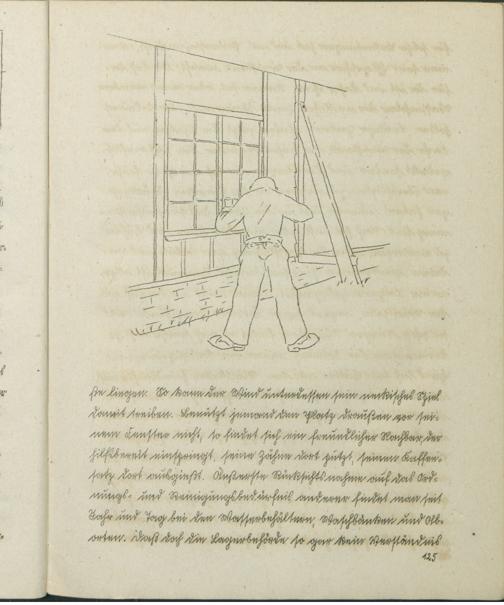 sie liegen. So kann der Wind unterdessen sein neckisches Spiel
damit treiben. Benützt jemand den Platz draußen vor sei-
nem Fenster nicht, so findet sich ein freundlicher Nachbar, der
hilfsbereit einspringt, seine Zähne dort putzt, seinen Kaffee-
satz dort ausgießt. Äußerste Rücksichtsnahme auf das Ord-
nungs- und Reinigungsbedürfnis anderer findet man seit
Jahr und Tag bei den Wasserbehältern, Waschbänken und Ab-
orten. Daß doch die Lagerbehörde so gar kein Verständnis
125